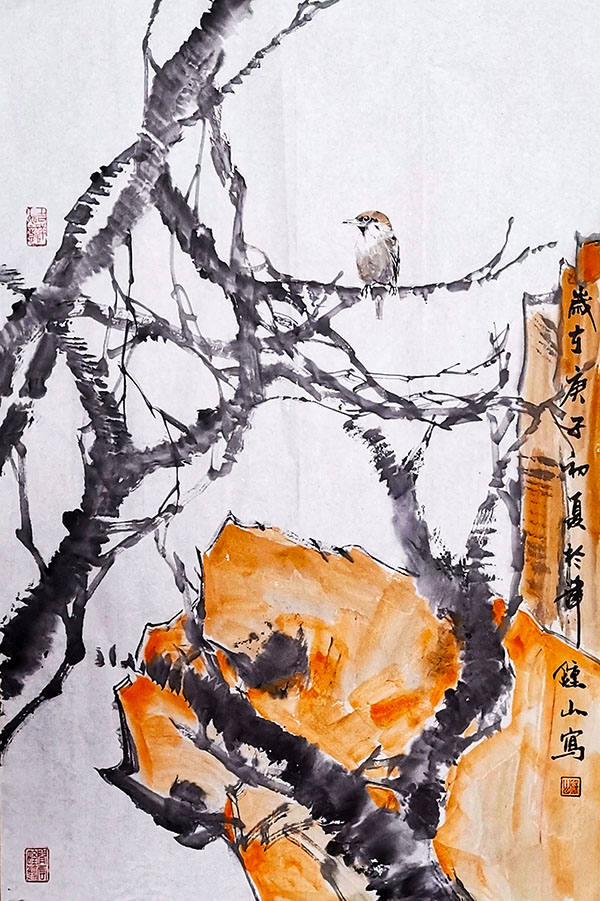 歲在庚子初夏於津鍾山寫